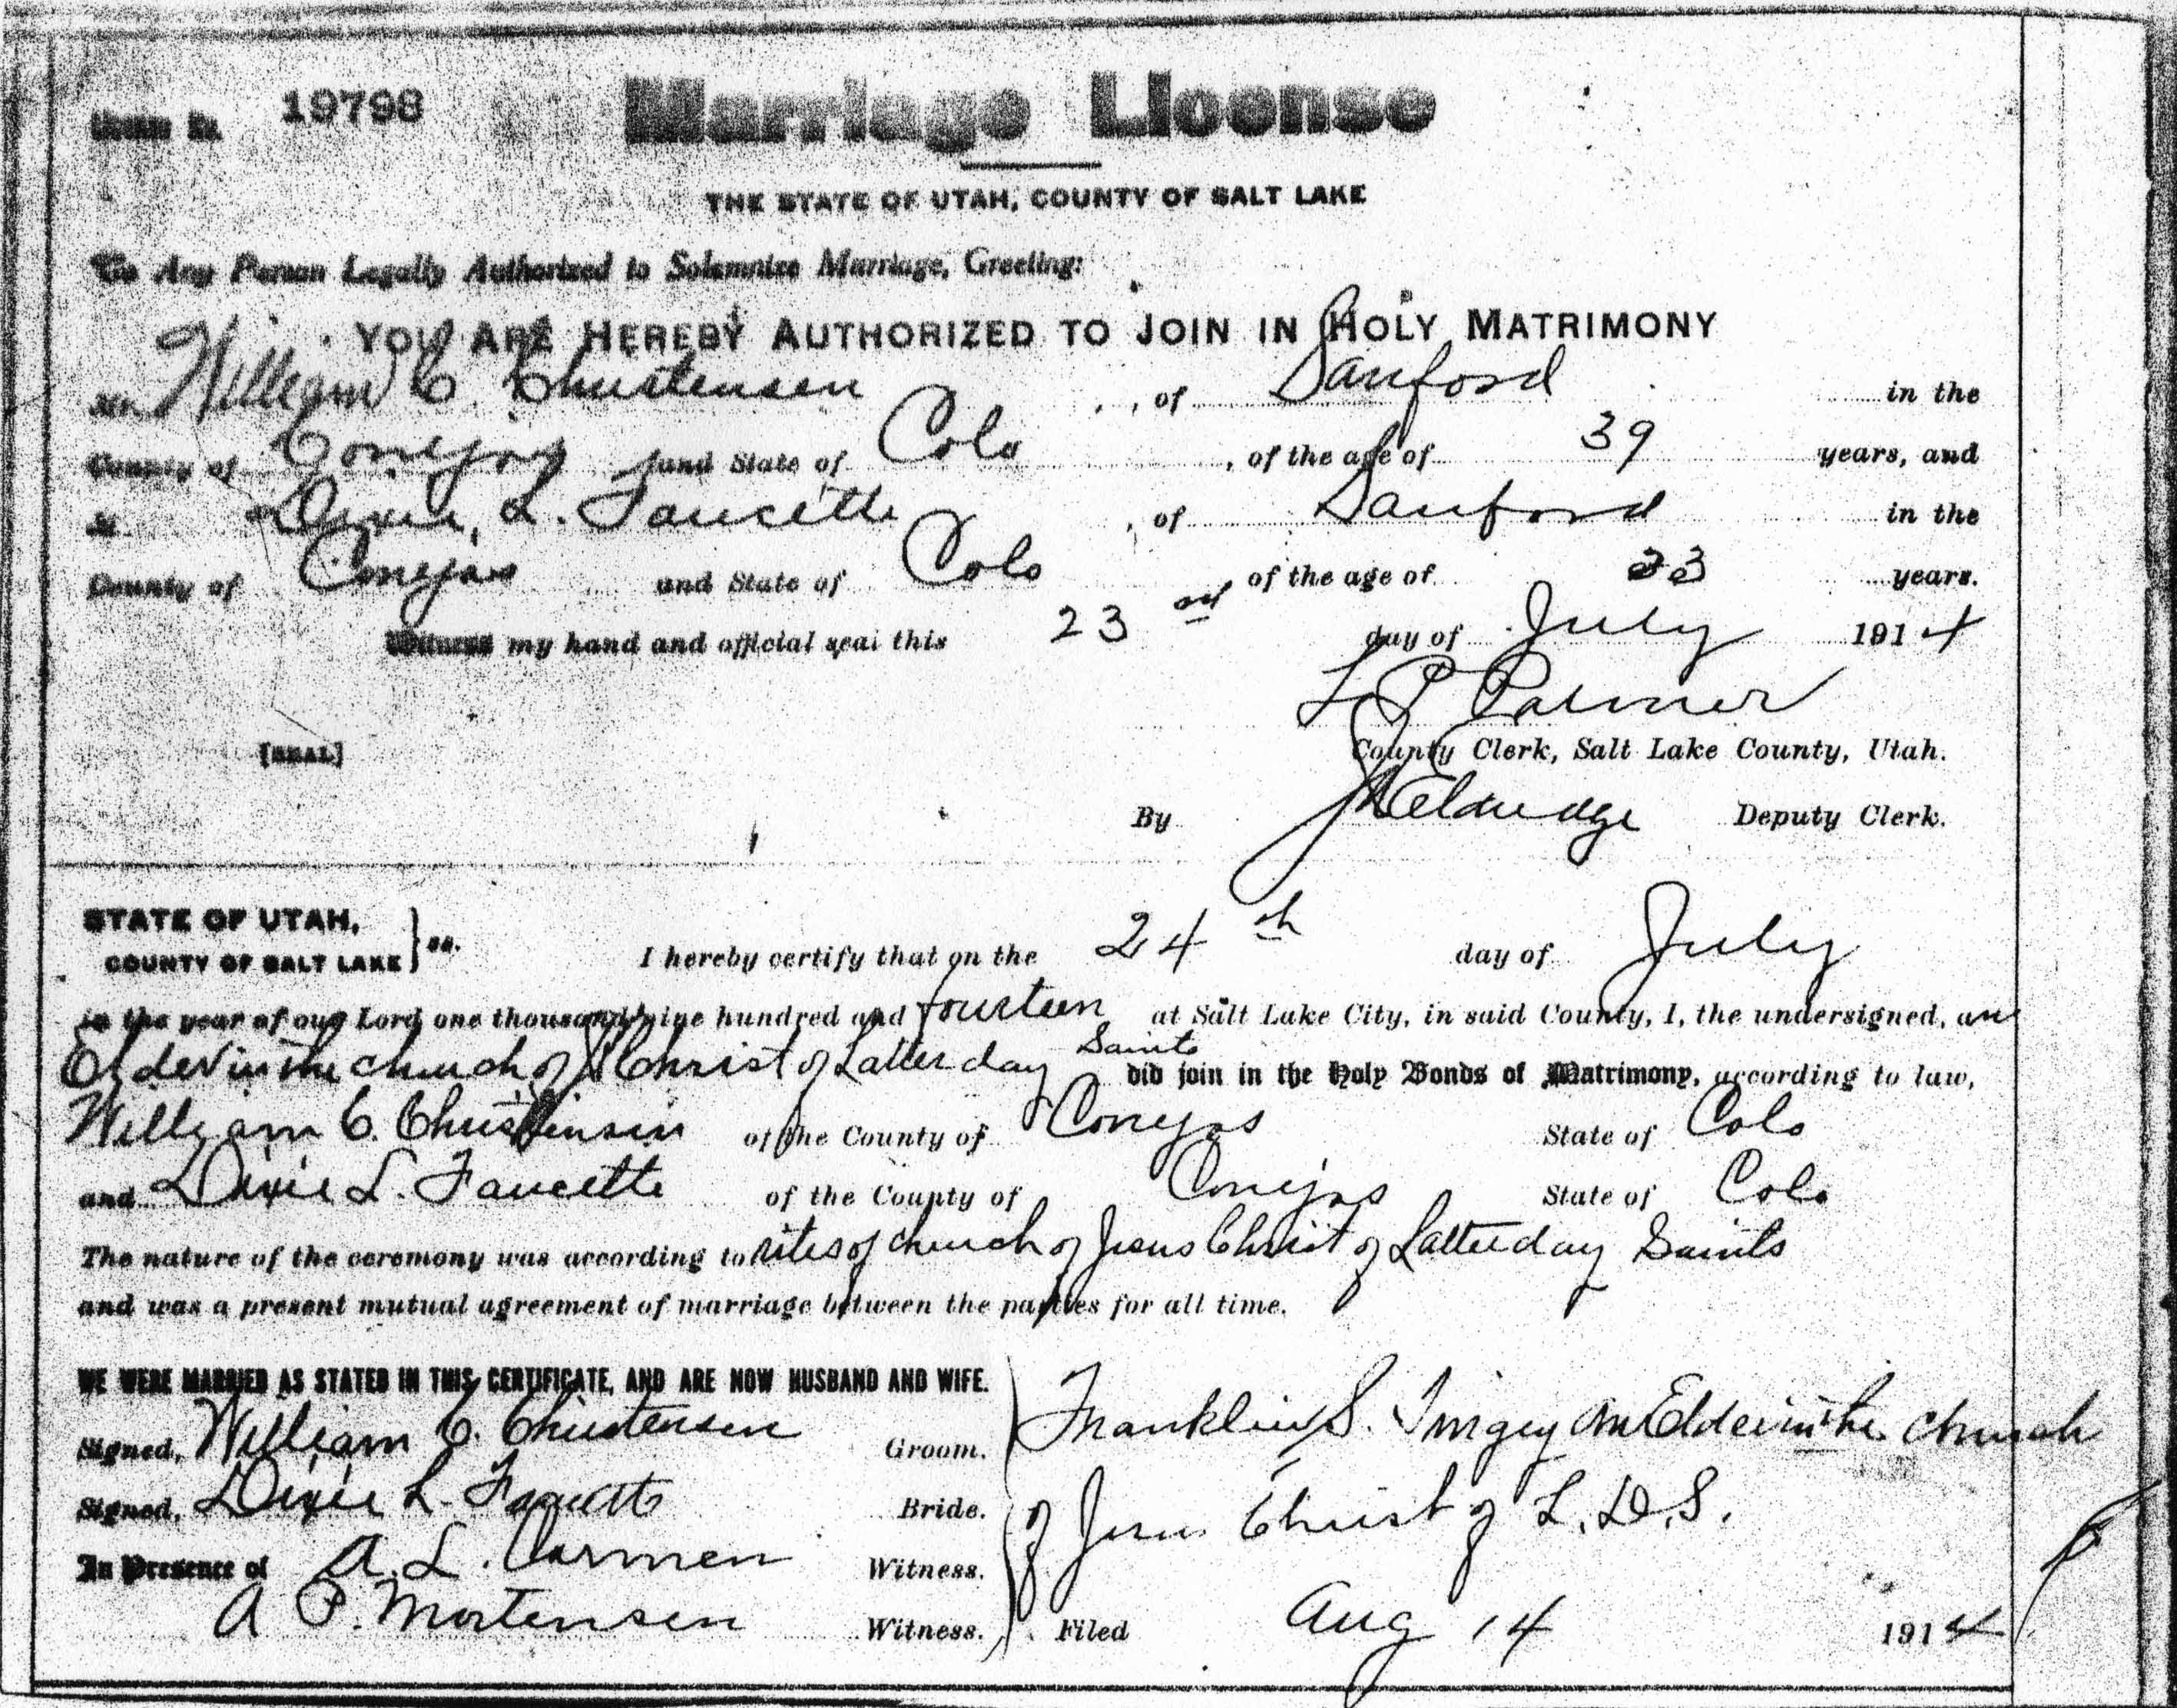 License No. 19798 Marriage License
THE STATE OF UTAH, COUNTY OF SALT LAKE
To Any Person Legally Authorized to Solemnize Marriage, Greeting:
YOU ARE HEREBY AUTHORIZED TO JOIN IN HOLY MATRIMONY
Mr. William C. Christensen, of Sanford in the
County of Conejos and State of Colo, of the age of 39 years, and
Dixie, L. Faucette, of Sanford in the
County of Conejos and State of Colo, of the age of 33 years.
Witness my hand and official seal this 23rd day of July 1914
Palmer
[SEAL] County Clerk, Salt Lake County, Utah.
By Eldredge Deputy Clerk.
STATE OF UTAH,
COUNTY OF SALT LAKE } ss. I hereby certify that on the 24th day of July
in the year of our Lord one thousand nine hundred and fourteen at Salt Lake City, in said County, I, the undersigned, an
Elder in the church of J Christ of Latter day Saints did join in the Holy Bonds of Matrimony, according to law,
William C. Christensen of the County of Conejos State of Colo
and Dixie L. Faucette of the County of Conejos State of Colo
The nature of the ceremony was according to rites of church of Jesus Christ of Latter day Saints
and was a present mutual agreement of marriage between the parties for all time.
WE WERE MARRIED AS STATED IN THIS CERTIFICATE, AND ARE NOW HUSBAND AND WIFE.
Signed, William C. Christensen Groom. Franklin S. Tingey An Elder in the church
Signed, Dixie L. Faucette Bride. of Jesus Christ of L.D.S.
In Presence of A. L. Carmen Witness.
A P. Mortensen Witness. Filed Aug 14 1914